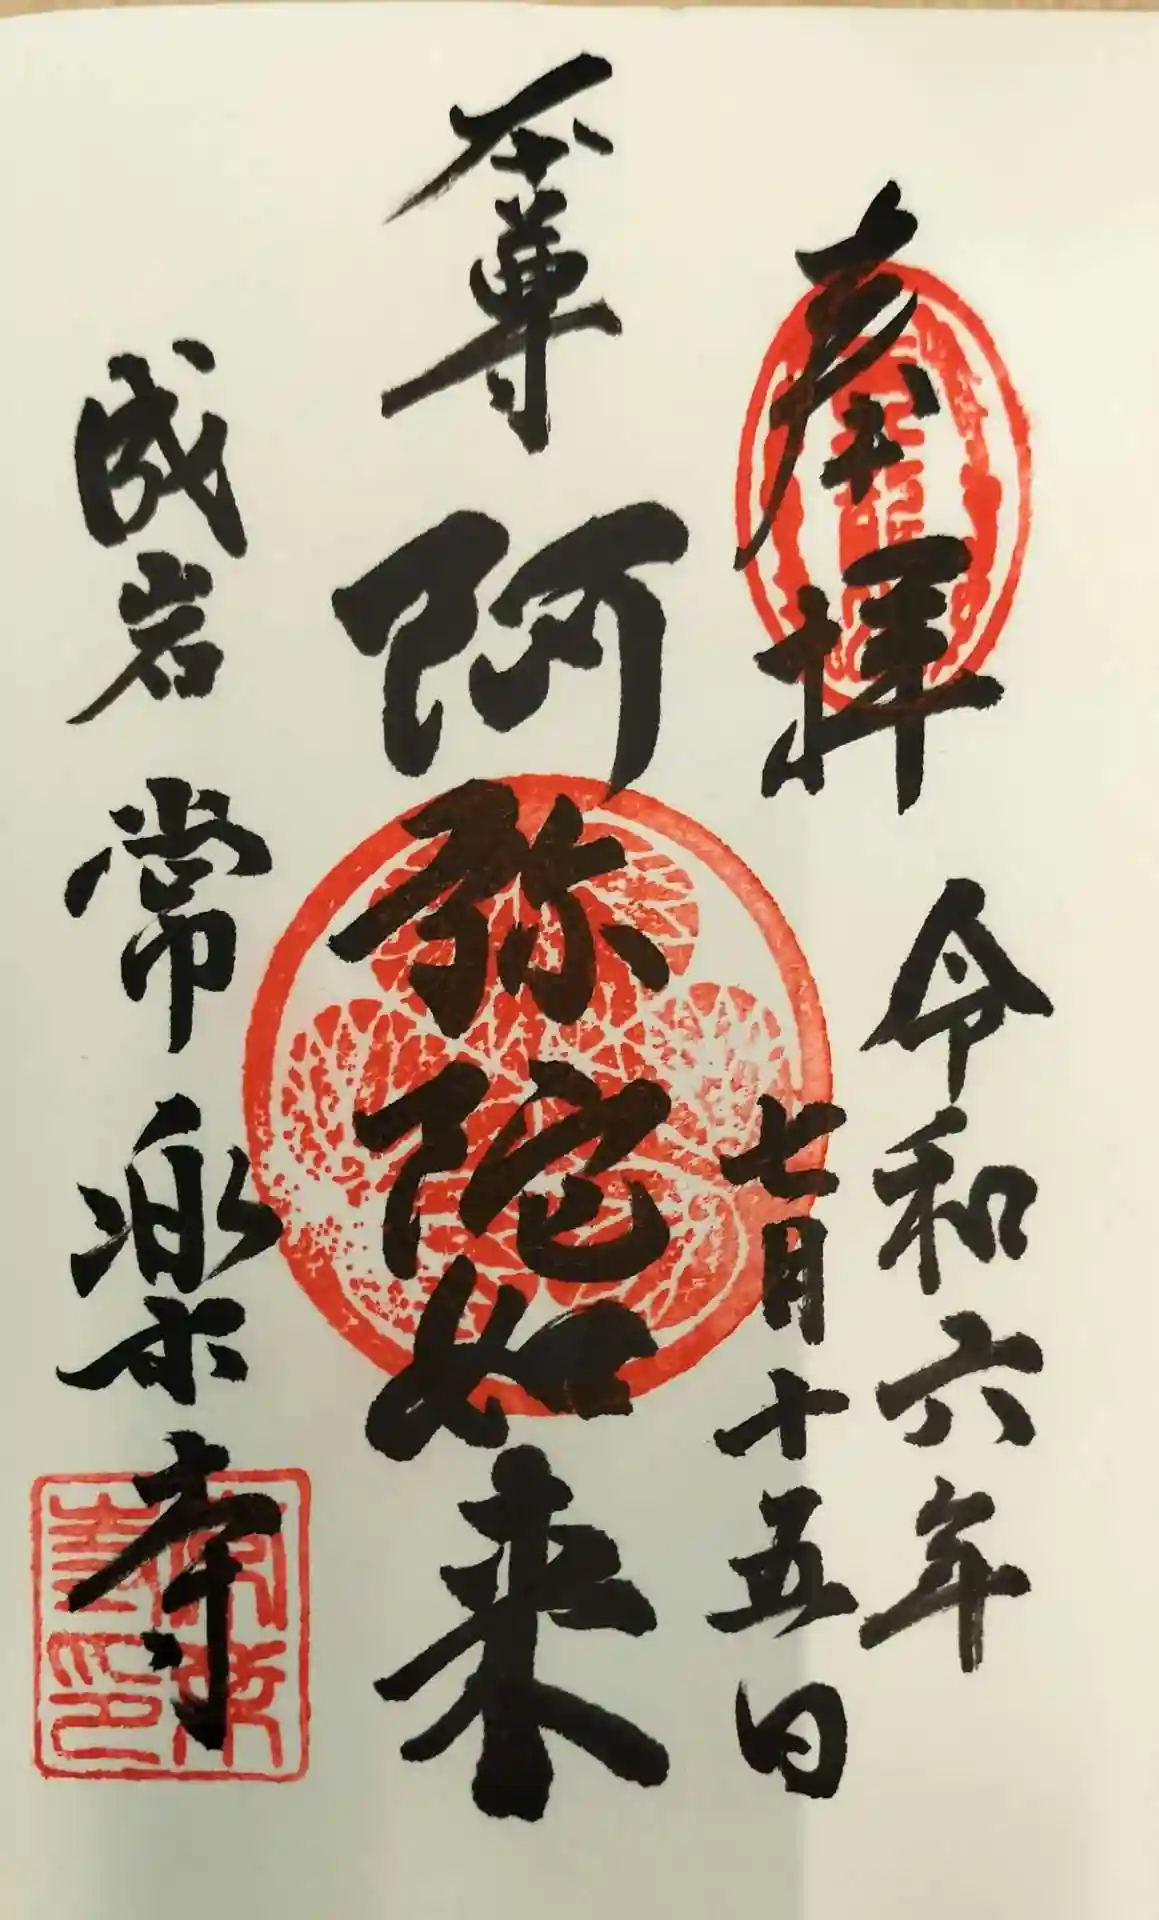 奉拝
令和六年
七月十五日
本尊 阿弥陀如来
成岩 常楽寺